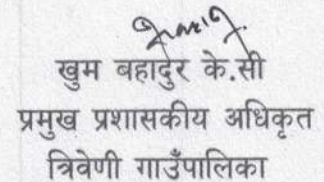 खुम बहादुर के.सी
प्रमुख प्रशासकीय अधिकृत
त्रिवेणी गाउँपालिका